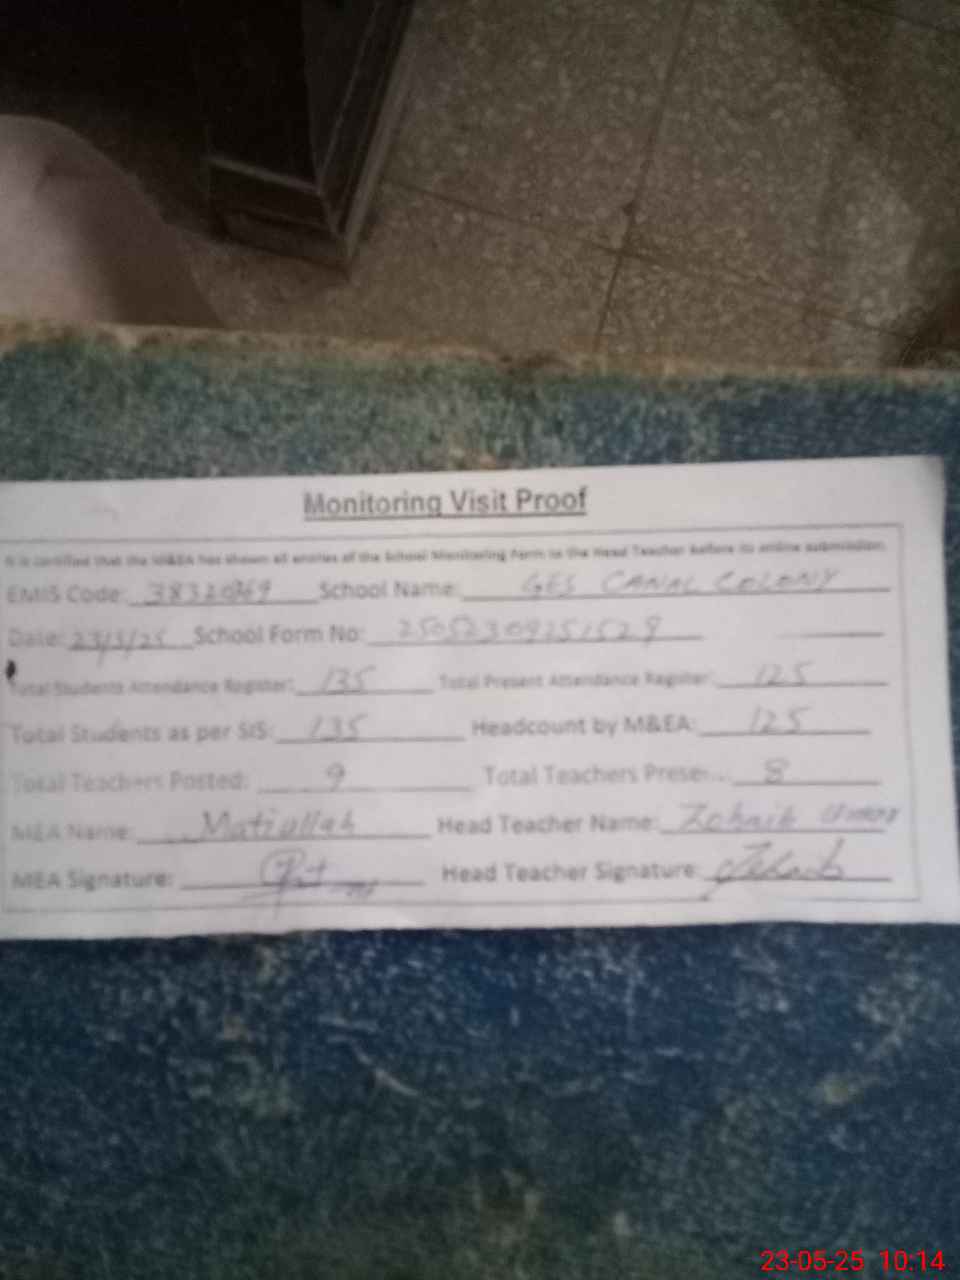 Monitoring Visit Proof
It is certified that the M&EA has shown all entries of the School Monitoring Form to the Head Teacher before its online submission.
EMIS Code: School Name: GES CANAL COLONY
Date: 23/5/25 School Form No: 25052309251529
Total Students Attendance Register: 135 Total Present Attendance Register: 125
Total Students as per SIS: 135 Headcount by M&EA: 125
Total Teachers Posted: 9 Total Teachers Prese... 8
MEA Name: Matiullah Head Teacher Name: Zohaib
MEA Signature: Head Teacher Signature: Zohaib
23-05-25 10:14